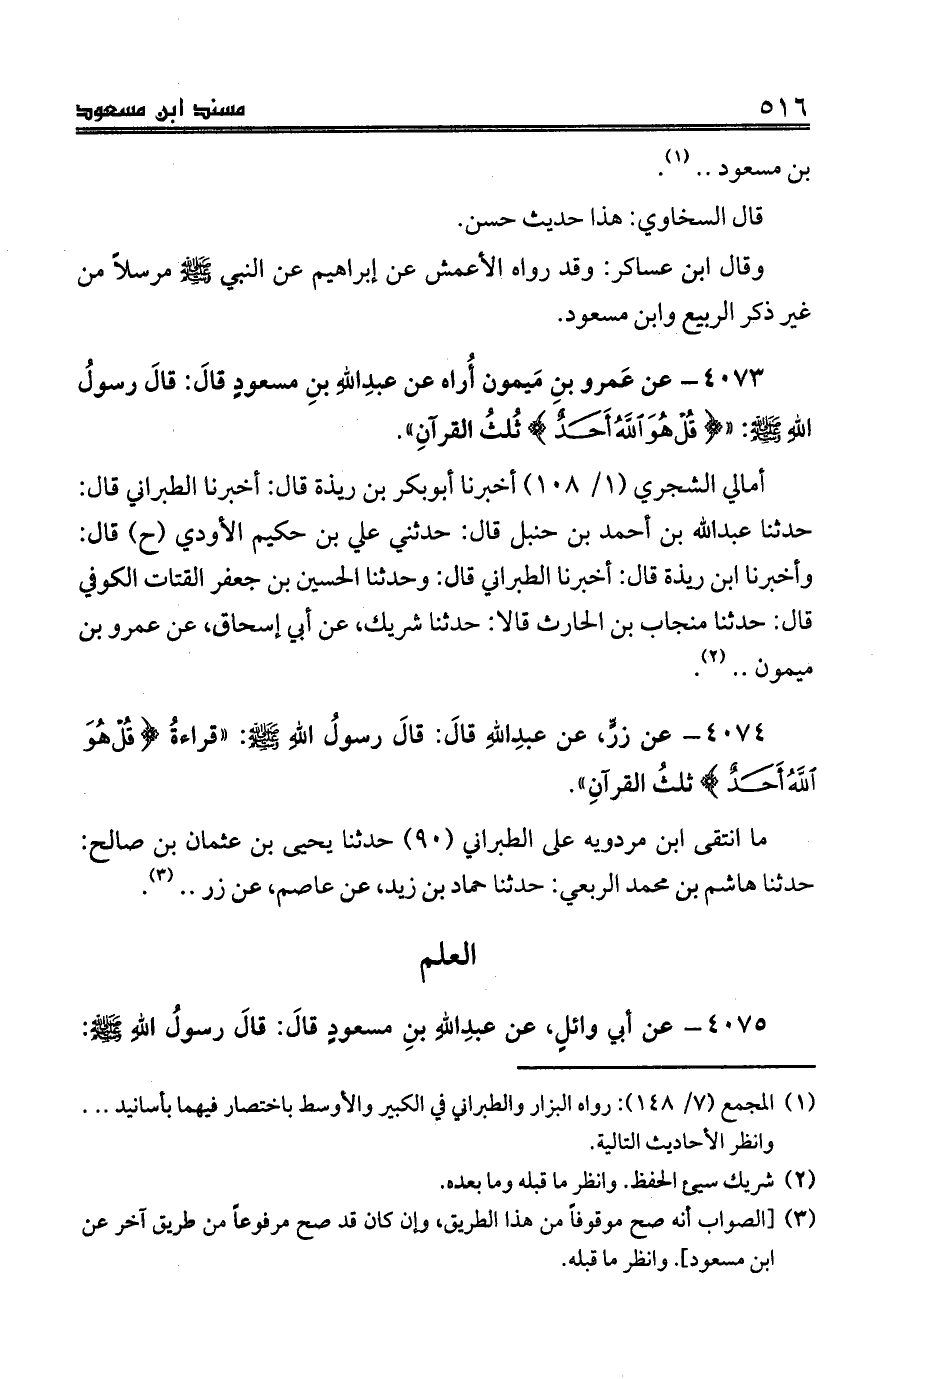 ٥١٦ مسند ابن مسعود
بن مسعود .. (١).
قال السخاوي: هذا حديث حسن.
وقال ابن عساكر: وقد رواه الأعمش عن إبراهيم عن النبي ﷺ مرسلاً من
غير ذكر الربيع وابن مسعود.
٤٠٧٣ – عن عَمرو بنِ مَيمون أُراه عن عبدِاللهِ بنِ مسعودٍ قالَ: قالَ رسولُ
اللهِ ﷺ: «﴿ قُلْ هُوَ ٱللَّهُ أَحَدٌ ﴾ ثُلثُ القرآنِ».
أمالي الشجري (١/ ١٠٨) أخبرنا أبوبكر بن ريذة قال: أخبرنا الطبراني قال:
حدثنا عبدالله بن أحمد بن حنبل قال: حدثني علي بن حكيم الأودي (ح) قال:
وأخبرنا ابن ريذة قال: أخبرنا الطبراني قال: وحدثنا الحسين بن جعفر القتات الكوفي
قال: حدثنا منجاب بن الحارث قالا: حدثنا شريك، عن أبي إسحاق، عن عمرو بن
ميمون .. (٢).
٤٠٧٤ – عن زرٍّ، عن عبدِاللهِ قالَ: قالَ رسولُ اللهِ ﷺ: «قراءةُ ﴿ قُلْ هُوَ
ٱللَّهُ أَحَدٌ ﴾ ثلثُ القرآنِ».
ما انتقى ابن مردويه على الطبراني (٩٠) حدثنا يحيى بن عثمان بن صالح:
حدثنا هاشم بن محمد الربعي: حدثنا حماد بن زيد، عن عاصم، عن زر .. (٣).
العلم
٤٠٧٥ – عن أبي وائلٍ، عن عبدِاللهِ بنِ مسعودٍ قالَ: قالَ رسولُ اللهِ ﷺ:
(١) المجمع (٧/ ١٤٨): رواه البزار والطبراني في الكبير والأوسط باختصار فيهما بأسانيد .. .
وانظر الأحاديث التالية.
(٢) شريك سيئ الحفظ. وانظر ما قبله وما بعده.
(٣) [الصواب أنه صح موقوفاً من هذا الطريق، وإن كان قد صح مرفوعاً من طريق آخر عن
ابن مسعود]. وانظر ما قبله.